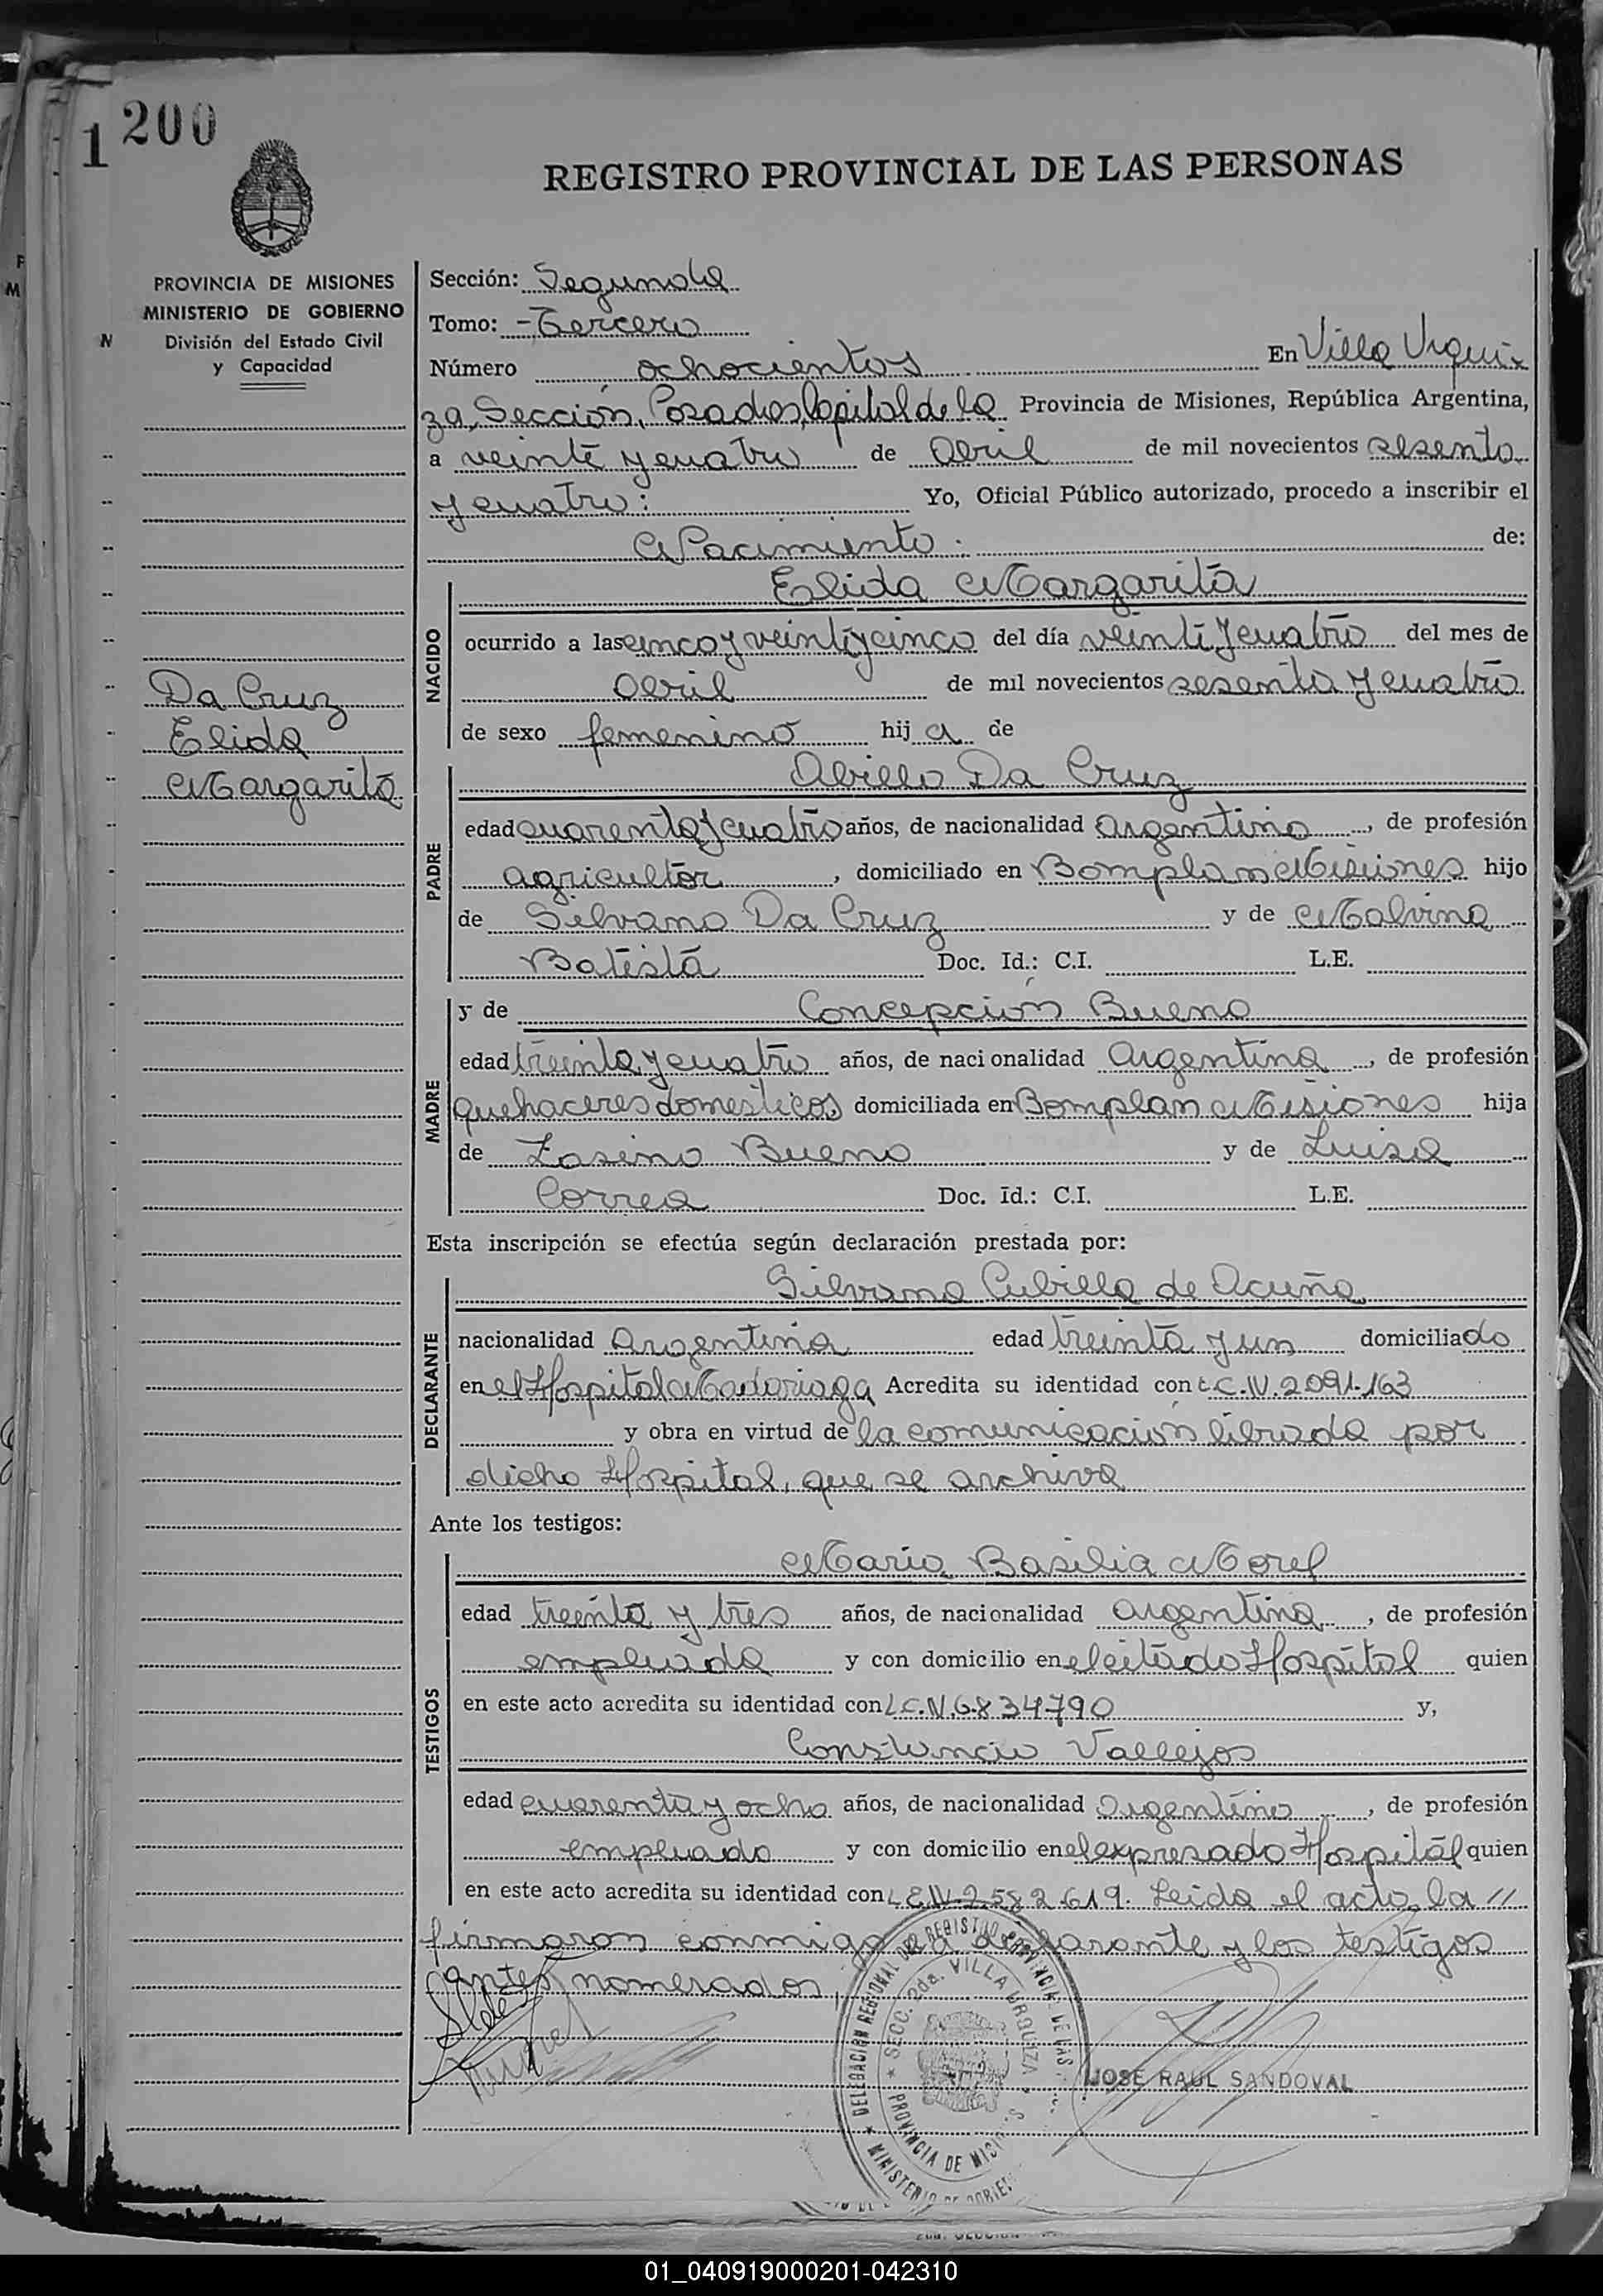 1 200
REGISTRO PROVINCIAL DE LAS PERSONAS
PROVINCIA DE MISIONES
MINISTERIO DE GOBIERNO
División del Estado Civil
y Capacidad
Da Cruz
Elida
Margarita
Sección: Segunda
Tomo: - Tercero
Número ochocientos En Villa Urqui
za, Sección, Posadas, Capital de la Provincia de Misiones, República Argentina,
a veinte y cuatro de Abril de mil novecientos sesenta
y cuatro: Yo, Oficial Público autorizado, procedo a inscribir el
Nacimiento. de:
NACIDO
Elida Margarita
ocurrido a las cinco y veinticinco del día veinti y cuatro del mes de
Abril de mil novecientos sesenta y cuatro
de sexo femenino hija de
PADRE
Abillo Da Cruz
edad cuarenta y cuatro años, de nacionalidad argentino, de profesión
agricultor, domiciliado en Bomplan Misiones hijo
de Silvano Da Cruz y de Malvina
Batista Doc. Id.: C.I. L.E.
MADRE
y de Concepción Bueno
edad treinta y cuatro años, de nacionalidad Argentina, de profesión
quehaceres domesticos domiciliada en Bomplan Misiones hija
de Zosimo Bueno y de Luisa
Correa Doc. Id.: C.I. L.E.
Esta inscripción se efectúa según declaración prestada por:
DECLARANTE
Silvana Cubilla de Acuña
nacionalidad Argentina edad treinta y un domiciliado
en el Hospital Madariaga Acredita su identidad con L.C.N. 2091.163
y obra en virtud de la comunicación librada por
dicho Hospital, que se archiva
Ante los testigos:
TESTIGOS
Maria Basilia Morel
edad treinta y tres años, de nacionalidad argentina, de profesión
empleada y con domicilio en el citado Hospital quien
en este acto acredita su identidad con L.C.N. 6.834790 y,
Constancio Vallejos
edad cuarenta y ocho años, de nacionalidad Argentino, de profesión
empleado y con domicilio en el expresado Hospital quien
en este acto acredita su identidad con L.E.N. 2.582.619. Leida el acto, la //
firmaron conmigo la declarante y los testigos
antes nomerados
DELEGACIÓN REGIONAL DEL REGISTRO PROVINCIAL DE LAS
SECC. 2da. VILLA URQUIZA
PROVINCIA DE MISIONES
MINISTERIO DE GOBIERNO
JOSE RAUL SANDOVAL
01_040919000201-042310